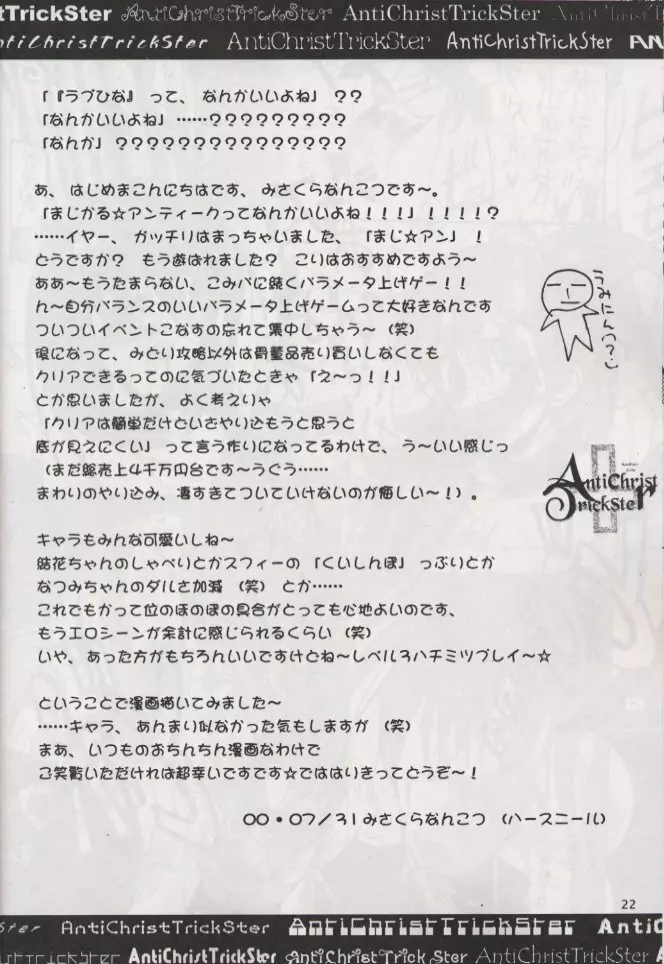 tTrickSter AntiChristTrickSter AntiChristTrickSter
AntiChristTrickSter AntiChristTrickSter AntiChristTrickSter AN
「『ラブひな』 って、 なんかいいよね」 ??
「なんかいいよね」 ……?????????
「なんか」 ???????????????
あ、 はじめまこんにちはです、 みさくらなんこつです〜。
「まじかる☆アンティークってなんかいいよね!!!」 !!!!?
……イヤー、 ガッチリはまっちゃいました、 「まじ☆アン」 !
どうですか? もう遊ばれました? こりはおすすめですよう〜
ああ〜もうたまらない、 こみパに続くパラメータ上げゲー!!
ん〜自分バランスのいいパラメータ上げゲームって大好きなんです
ついついイベントこなすの忘れて集中しちゃう〜 (笑)
後になって、 みどり攻略以外は骨董品売り買いしなくても
クリアできるってのに気づいたときゃ 「え〜っ!!」
とか思いましたが、 よく考えりゃ
「クリアは簡単だけどいざやり込もうと思うと
底が見えにくい」 って言う作りになってるわけで、 う〜いい感じっ
(まだ総売上4千万円台です〜うぐぅ……
まわりのやり込み、 凄すぎてついていけないのが悔しい〜!) 。
うみにん(?)
AntiChrist
TrickSter
キャラもみんな可愛いしね〜
結花ちゃんのしゃべりとかスフィーの 「くいしんぼ」 っぷりとか
なつみちゃんのダルさ加減 (笑) とか……
これでもかって位のほのぼの具合がとっても心地よいのです、
もうエロシーンが余計に感じられるくらい (笑)
いや、 あった方がもちろんいいですけどね〜レベル3ハチミツプレイ〜☆
ということで漫画描いてみました〜
……キャラ、 あんまり似なかった気もしますが (笑)
まあ、 いつものおちんちん漫画なわけで
ご笑覧いただければ超幸いですです☆でははりきってどうぞ〜!
00・07/31みさくらなんこつ (ハースニール)
22
AntiChristTrickSter AntiChristTrickSter AntiC
AntiChristTrickSter AntiChristTrickSter AntiChristTrickSter